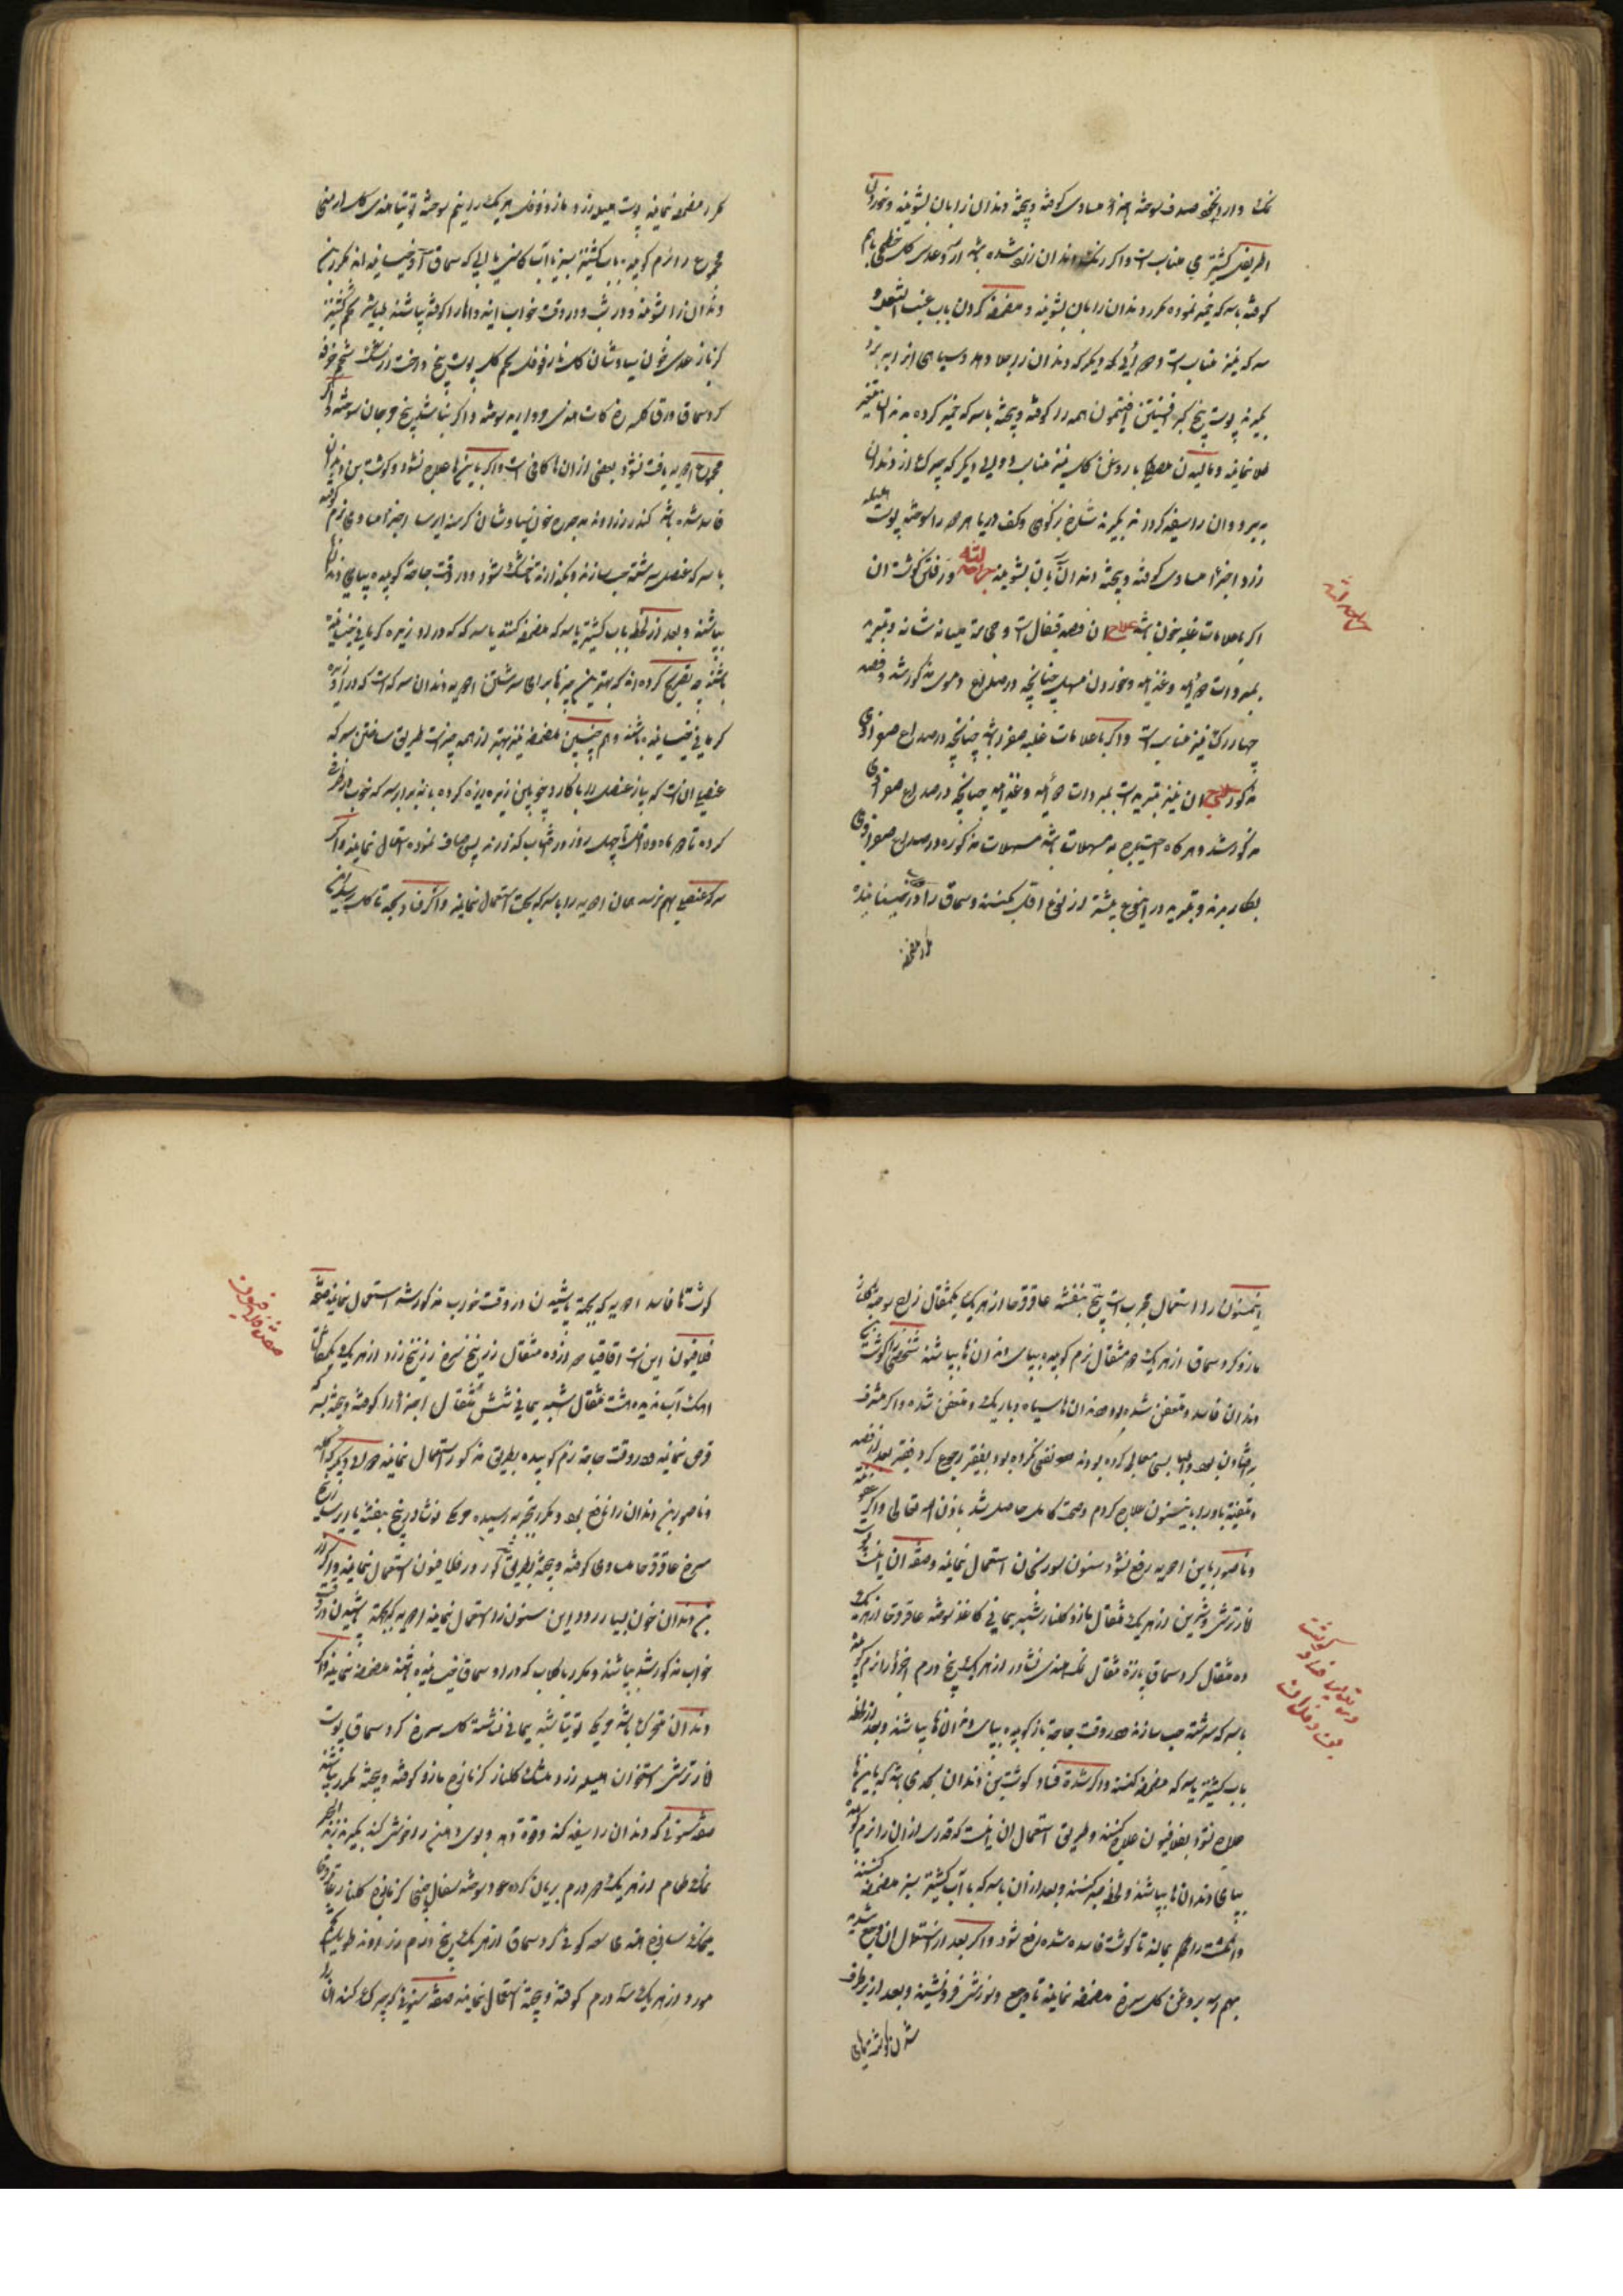 نمک و دارچین و صدف سوخته اجزا مساوی کوفته و بیخته دندان را بان بشویند و خوردن
اطریفل کشنیزی مناسب است و اگر رنگ دندان زرد شده باشد آرد عدس گل خطمی باهم
کوفته باسرکه خمیر نموده مکرر دندان را بان بشویند و مضمضه کردن باب عنب الثعلب و
سرکه نیز مناسب است دوایی دیگر که دندان را جلا دهد و سیاهی را ببرد
بگیرند پوست بیخ کبر افسنتین افتیمون همه را کوفته و بیخته باسرکه خمیر کرده به دندان
طلا نمایند و مالیدن مصطکی با روغن گل نیز مناسب دوای دیگر که چرک از دندان
ببرد و آن را سفید کرداند بگیرند شاخ بزکوهی و کف دریا هر دو را سوخته پوست هلیله
زرد اجزا مساوی کوفته و بیخته دندان را بان بشویند جراحه لثه و رفتن گوشت آن
اگر با علامات غلبه خون باشد علاج آن فصد قیفال است و حجامت میان شانه و تبرید
بمبردات دوائیه و غذائیه و خوردن مسهل چنانچه در صداع دموی مذکور شد و فصد
چهار رگ نیز مناسب است و اگر با علامات غلبه صفرا باشد چنانچه در صداع صفراوی
مذکور علاج آن نیز تبرید است بمبردات دوائیه و غذائیه چنانچه در صداع صفراوی
مذکور شد و هرگاه احتیاج به مسهلات باشد مسهلات مذکوره در صداع صفراوی
بکار برند و تبرید در این نوع بیشتر از نوع اول بکنند و سماق را در آب خیسانیده
مکرر مضمضه
جراحه لثه
مکرر مضمضه نمایند پوست هلیله زرد و مازو و فوفل هر یک را نیم سوخته توتیا هندی گل ارمنی
مجموع را نرم کوبیده باب کشنیز سبز یا آب کاسنی یا آبی که سماق در آن خیسانیده اند مکرر بن
دندان را بشویند و در شب در وقت خواب این دواها را کوفته بپاشند طباشیر تخم کشنیز
کزمازج عدس خون سیاوشان گلنار فوفل تخم گل پوست بیخ درخت زرشک تخم خرفه
کرد سماق ورق گل سرخ کات هندی مروارید سوخته و اگر نباشد بیخ مرجان سوخته و اگر
مجموع ادویه یافت نشود بعضی از آن ها کافی است و اگر باینها علاج نشود و گوشت بن دندان
فاسد شده باشد کندر زراوند مدحرج خون سیاوشان کرسنه ایرسا اجزا مساوی نرم کوفته
باسرکه عنصل سرشته حب سازند و بگذارند تا خشک شود و در وقت حاجت کوبیده بپای دندانها
بپاشند و بعد از لحظه باب کشنیز یا سرکه مضمضه کنند یا سرکه که در او زیره کرمانی خیسانیده
باشند چه تصریح کرده اند که بهترین چیزها برای سرشتن ادویه دندان سرکه است که در او زیره
کرمانی خیسانیده باشند و همچنین مضمضه نیز بهتر از همه چیز است طریق ساختن سرکه
عنصلی آن است که پیاز عنصل را با کارد چوبین ریزه ریزه کرده با ده برابر سرکه خوب در ظرف
کرده تا دو ماه و لا اقل تا چهل روز در آفتاب گذارند پس صاف نموده استعمال نمایند و اگر
سرکه عنصلی بهم نرسد همان ادویه را باسرکه بحت استعمال نمایند و اگر فساد بحد تاکل رسیده باشد
اینسنون را استعمال مجرب است بیخ بنفشه عاقرقرحا از هر یک یکمثقال زاج سوخته گلنار
مازو کرد سماق از هر یک دو مثقال نرم کوبیده بپای دندان ها بپاشند شخصی را گوشت بن
دندان فاسد و متعفن شده بود دندان ها سیاه و باریک و متعفن شده و اگر مشرف
بر افتادن بود و اطبا بسی معالجه کرده بودند هیچ نفعی نکرده بود بفقیر رجوع کرد فقیر بعد از فصد
و تنقیه باو را باینسنون علاج کردم و صحت کامل حاصل شد باذن الله تعالی و اگر عفونت
و ناصور باین ادویه رفع نشود سنون سورنجان استعمال نمایند و صفة آن این است پوست
انار ترش و شیرین از هر یک مثقال مازو گلنار شب یمانی کاغذ سوخته عاقرقرحا از هر یک
ده مثقال کرد سماق پانزده مثقال نمک هندی نشادر از هر یک پنج درم اجزا را نرم کوفته
باسرکه سرشته حب سازند در وقت حاجت باز کوبیده بپای دندان ها بپاشند و بعد از لحظه
باب کشنیز یا سرکه مضمضه کنند و اگر شدة فساد گوشت بن دندان بحدی باشد که باینها
علاج نشود بفلافیون علاج کنند و طریق استعمال آن اینست که قدری از آن را نرم کوفته
بپای دندان ها بپاشند و لحظه صبر کنند و بعد از آن با سرکه یا آب کشنیز سبز مضمضه کنند
و انگشت را هم بمالند تا گوشت فاسد شده رفع شود و اگر بعد از استعمال آن وجع شدید
بهم رسد بروغن گل سرخ مضمضه نمایند تا وجع و سوزش فرو نشیند و بعد از برطرف
شدن گوشتهای
در تدبیر فساد گوشت
بن دندان
گوشتها فاسد ادویه که بجهت پاشیدن در وقت خواب مذکور شد استعمال نمایند صفة
فلافیون این است اقاقیا دوازده مثقال زرنیخ سرخ زرنیخ زرد از هر یک یکمثقال
آهک آب ندیده هشت مثقال شب یمانی شش مثقال اجزا را کوفته و بیخته بسرکه
قرص نمایند و در وقت حاجت نرم کوبیده بطریق مذکور استعمال نمایند دوای دیگر که آکله
و ناصور بن دندان را نافع بود و مکرر بتجربه رسیده نشادر بیخ بنفشه یا ایرسا زرنیخ
سرخ عاقرقرحا مساوی کوفته و بیخته بطریق مذکور در فلافیون استعمال نمایند و اگر از
بن دندان خون بسیار رود این سنون را استعمال نمایند ادویه که بجهت پاشیدن در وقت
خواب مذکور شد بپاشند و مکرر باب که در او سماق خیسانیده باشند مضمضه نمایند و اگر
دندان متحرک باشد توتیا شب یمانی نشاسته گل سرخ کرد سماق پوست
انار ترش استخوان هلیله زرد مشک گلنار کزمازج مازو کوفته و بیخته مکرر بپاشند
صفة سنونی که دندان را سفید کند و قوة دهد و بوی دهن را خوش کند بگیرند زبد البحر
نمک طعام از هر یک دو درم بریان کرده عود سوخته سفال چینی کزمازج گلنار عاقرقرحا
سعد کوفی کرد سماق از هر یک پنج درم زراوند طویل
مورد از هر یک سه درم کوفته و بیخته استعمال نمایند صفة سنونی که چرک کند آن را
صفة فلافیون